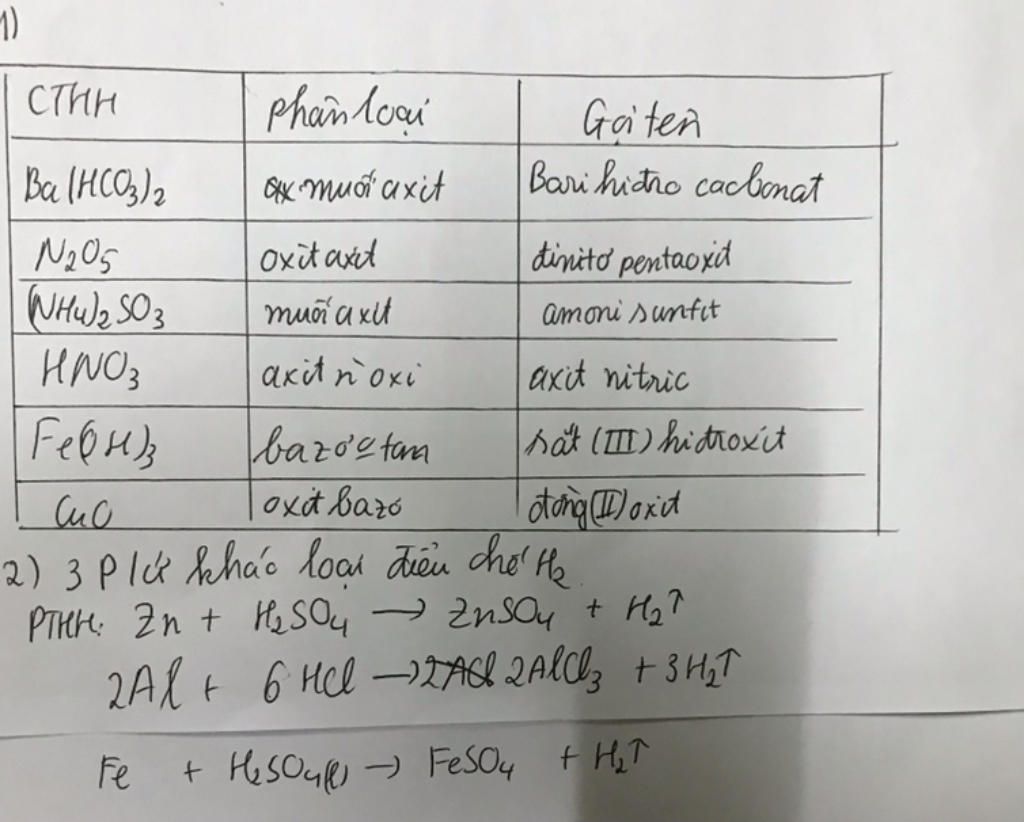 1)
CTHH phân loại Gọi tên
Ba(HCO3)2 muối axit Bari hiđro cacbonat
N2O5 oxit axit đinitơ pentaoxit
(NH4)2SO3 muối axit amoni sunfit
HNO3 axit n` oxi axit nitric
Fe(OH)3 bazơ tan sắt (III) hiđroxit
CuO oxit bazơ đồng(II) oxit
2) 3 P/ứ khác loại điều chế H2
PTHH: Zn + H2SO4 → ZnSO4 + H2↑
2Al + 6 HCl → 2AlCl3 + 3H2↑
Fe + H2SO4(l) → FeSO4 + H2↑